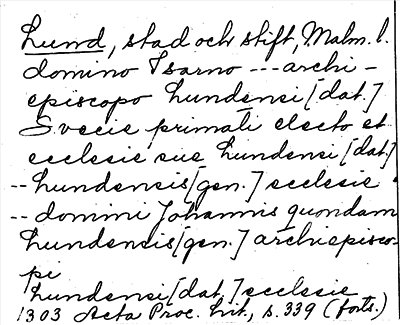 Lund, stad och stift, Malm. l.
domino Isarno --- archi-
episcopo Lundensi [dat.]
Svecie primati electo et
ecclesie sue Lundensi [dat.]
-- Lundensis [gen.] ecclesie -
-- domini Johannis quondam
Lundensis [gen.] archiepisco-
pi
Lundensi [dat.] ecclesie
1303 Acta Proc. Lit., s. 339 (forts.)